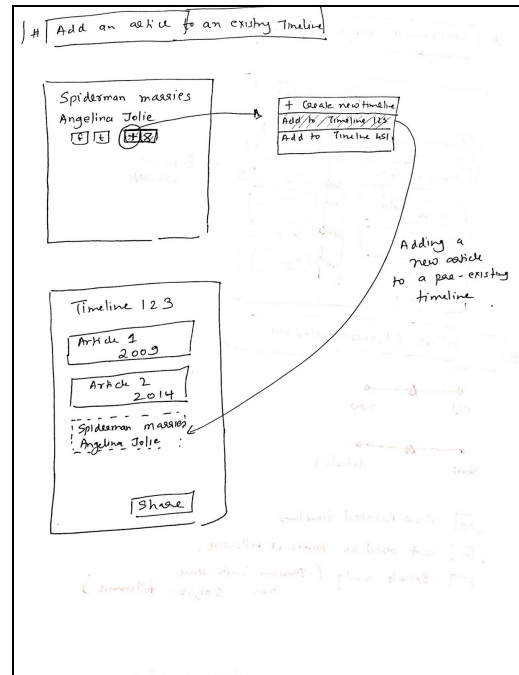 # Add an article to an existing Timeline
Spiderman marries
Angelina Jolie
f t +
+ Create new timeline
Add to Timeline 123
Add to Timeline 451
Adding a
new article
to a pre-existing
timeline
Timeline 123
Article 1
2009
Article 2
2014
Spiderman marries
Angelina Jolie
Share